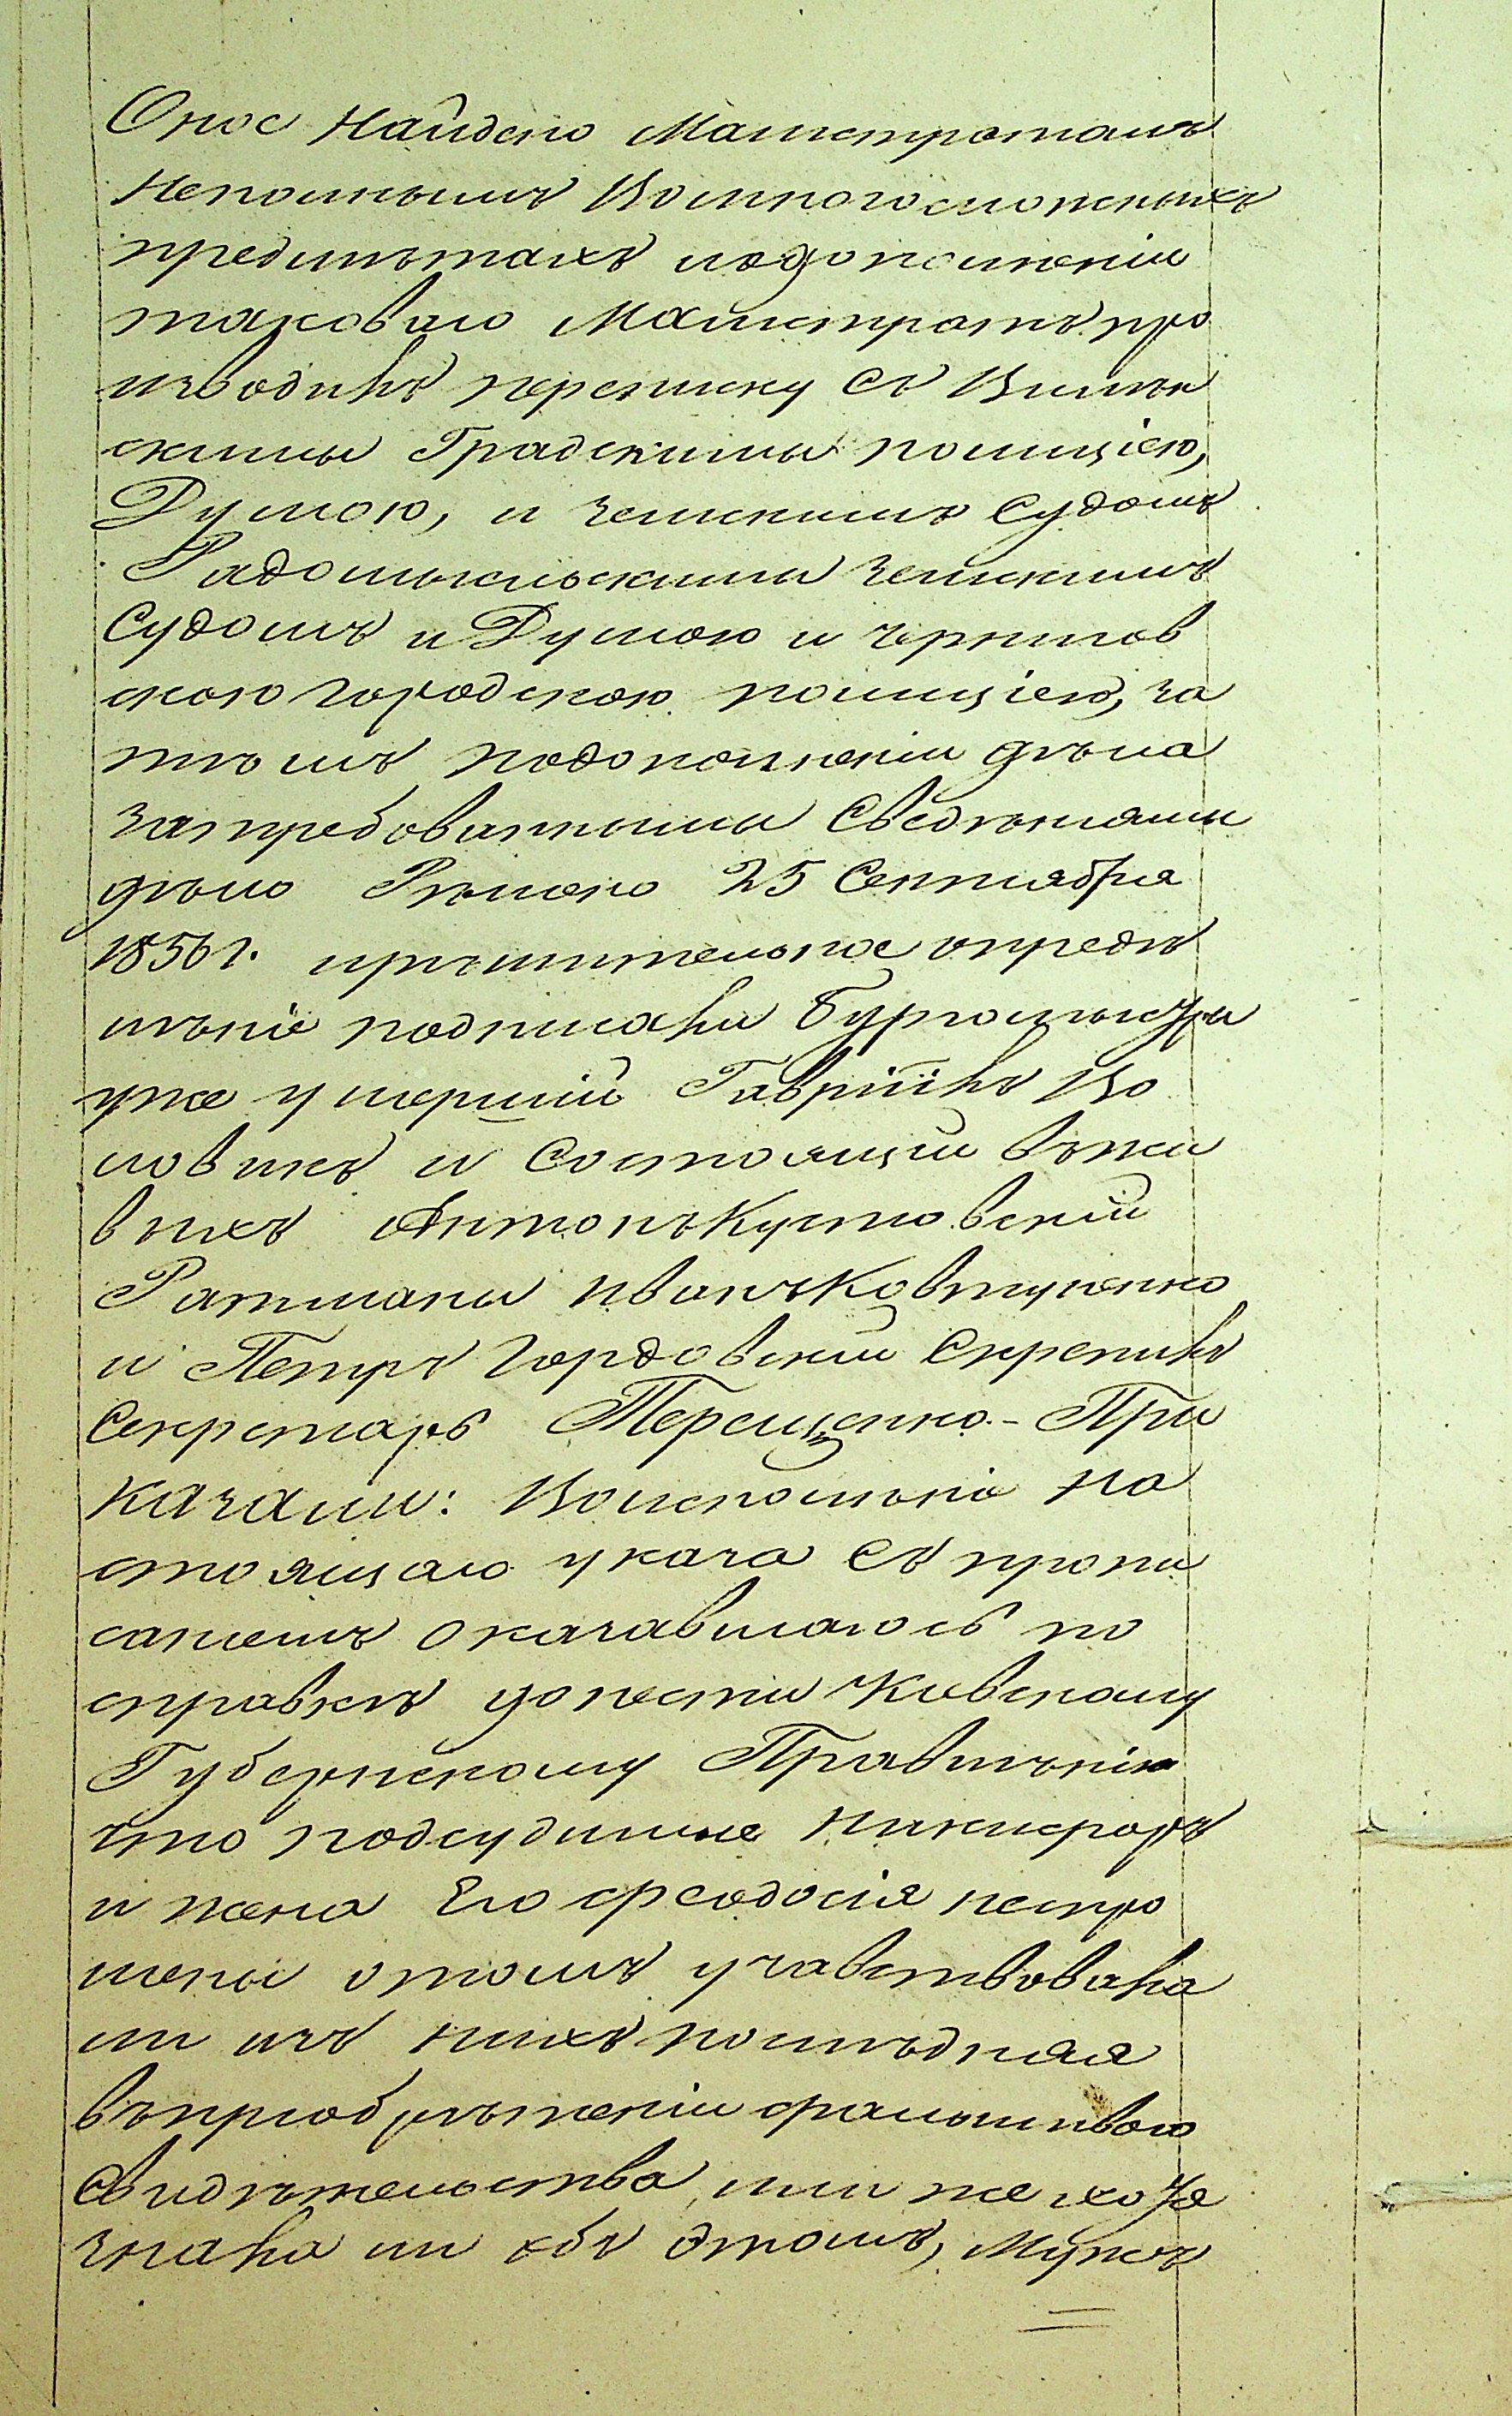 Оное Найдено Магистратомъ
Неполнымъ Вомногосложныхъ
предмѣтахъ подополненіи
таковаго Магистратъ про
изводилъ переписку съ Кіевъ
скими Градскими полиціею,
Думою, и земскимъ Судомъ
Радомысльскими земскимъ
Судомъ и Думою и чернигов
скою городскою полиціею, за
тѣмъ подополненіи дѣла
затребованными Сведѣніями
дѣло Рѣшено 25 Сентября
1856 г. ирѣшительное опредѣ
лѣніе подписали Бургомыстры
уже умершій Гавріилъ Во
ловикъ и Состоящій въжи
выхъ Антонъ Кустовскій
Ратманы Иванъ Ковтуненко
и Петръ Гордовскій Скрепилъ
Секретарь Терещенко - При
казали: Воисполненіе На
стоящаго указа Съ пропи
саніемъ оказавшагося по
справкѣ донести Кіевскому
Губернскому Правлѣнію
что подсудимые Никифоръ
и жена Его феодосія неспро
шены отомъ учавствовала
ли изъ нихъ послѣдняя
въпріобрѣтеніи фальшиваго
Свидѣтельства или же хотя
знала ли объ этомъ, Мужъ